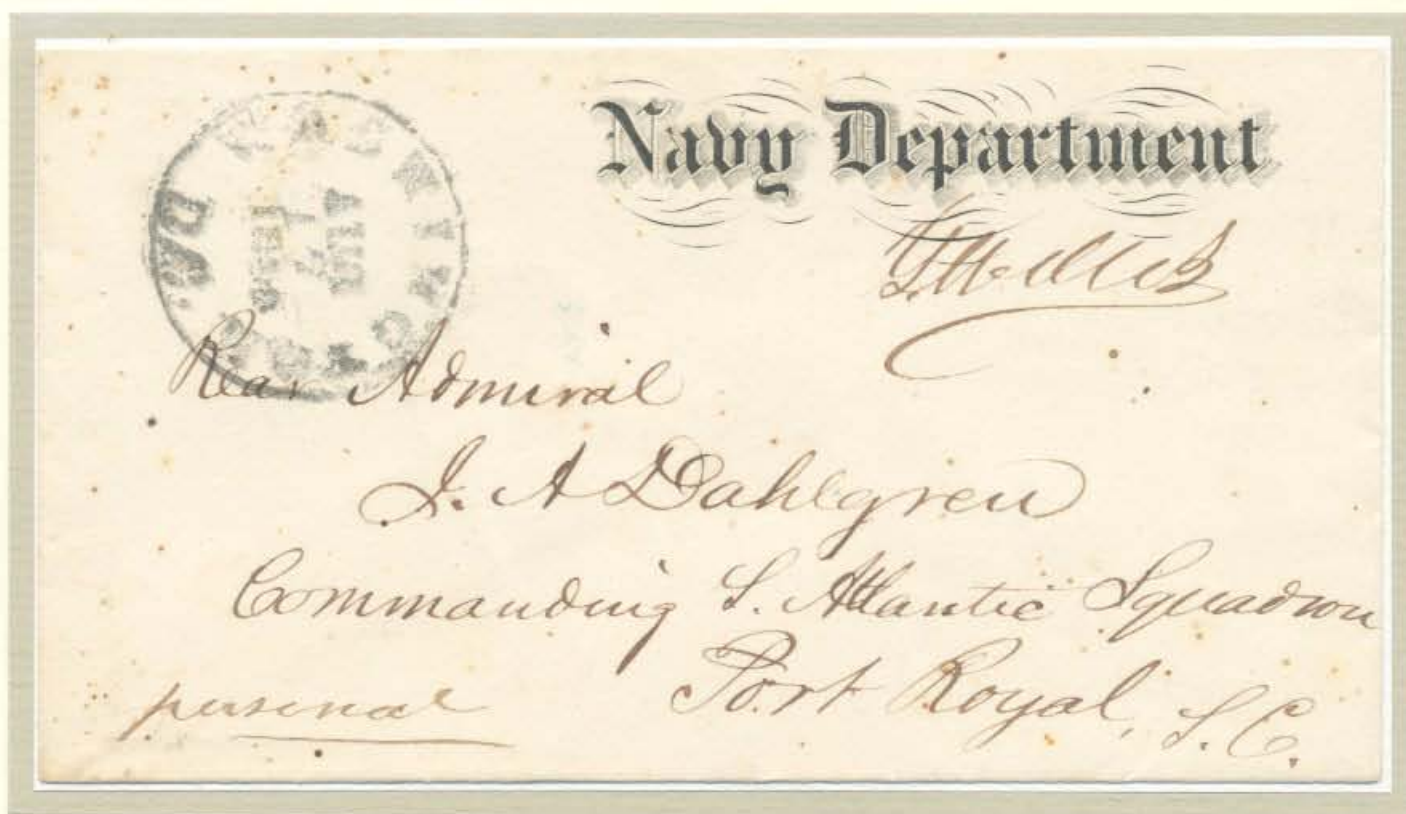 Navy Department
G. Welles
Rear Admiral
J. A Dahlgren
Commanding S. Atlantic Squadron
Port Royal, S.C.
personal